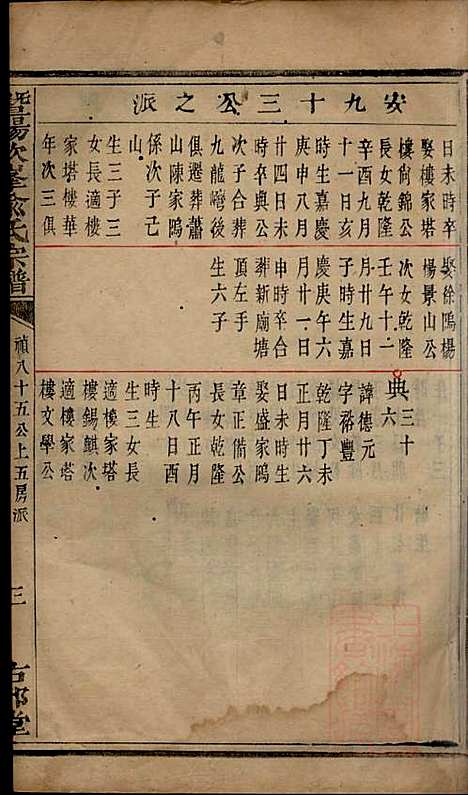 安九十三公之派
日未時卒
娶樓家塔
樓尙錦公
長女乾隆
辛酉九月
十一日亥
時生嘉慶
庚申八月
廿四日未
時卒與公
次子合葬
九龍灣後
俱遷葬蕭
山陳家塢
係次子己
山
生三子三
女長適樓
家塔樓華
年次三俱
娶徐塢楊
楊景山公
次女乾隆
壬午十一
月廿九日
子時生嘉
慶庚午六
月廿一日
申時卒
葬新廟塘
頂左手
生六子
典三十六
諱德元
字裕豐
乾隆丁未
正月廿六
日未時生
娶盛家塢
章正備公
長女乾隆
丙午正月
十八日酉
時生
生三女長
適樓家塔
樓錫麒次
適樓家塔
樓文學公
暨陽次峯俞氏宗譜
禎八十五公上五房派
三